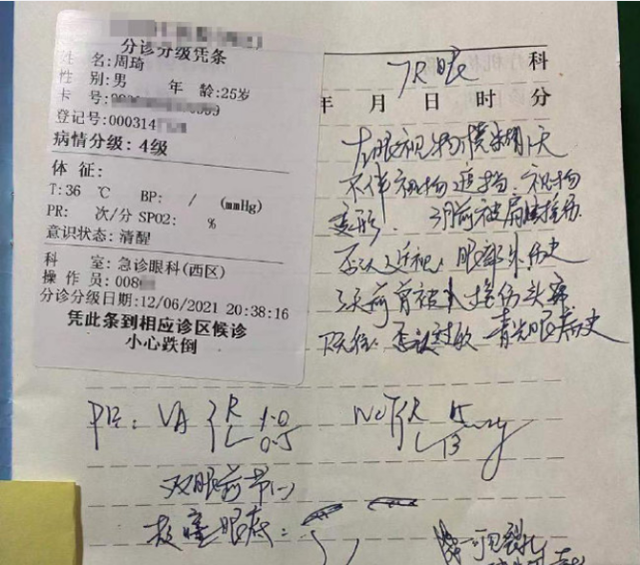 分诊分级凭条
姓 名:周琦
性 别:男 年 龄:25岁
卡 号:
登记号:000314
病情分级: 4级
体 征:
T:36 ℃ BP: / (mmHg)
PR: 次/分 SPO2: %
意识状态: 清醒
科 室: 急诊眼科(西区)
操 作 员: 008
分诊分级日期:12/06/2021 20:38:16
凭此条到相应诊区候诊
小心跌倒
眼 科
年 月 日 时 分
左眼视物模糊1天
不伴视物遮挡、视物
变形. 前被肩膀撞伤
否认近视、眼部外伤史
3天前曾被人撞伤头部
既往: 否认过敏 青光眼病史
PE: VA R 1.0 NCT R 15 mmHg
L 0.5 L 13
双眼前节(-)
散瞳眼底:
可见裂孔